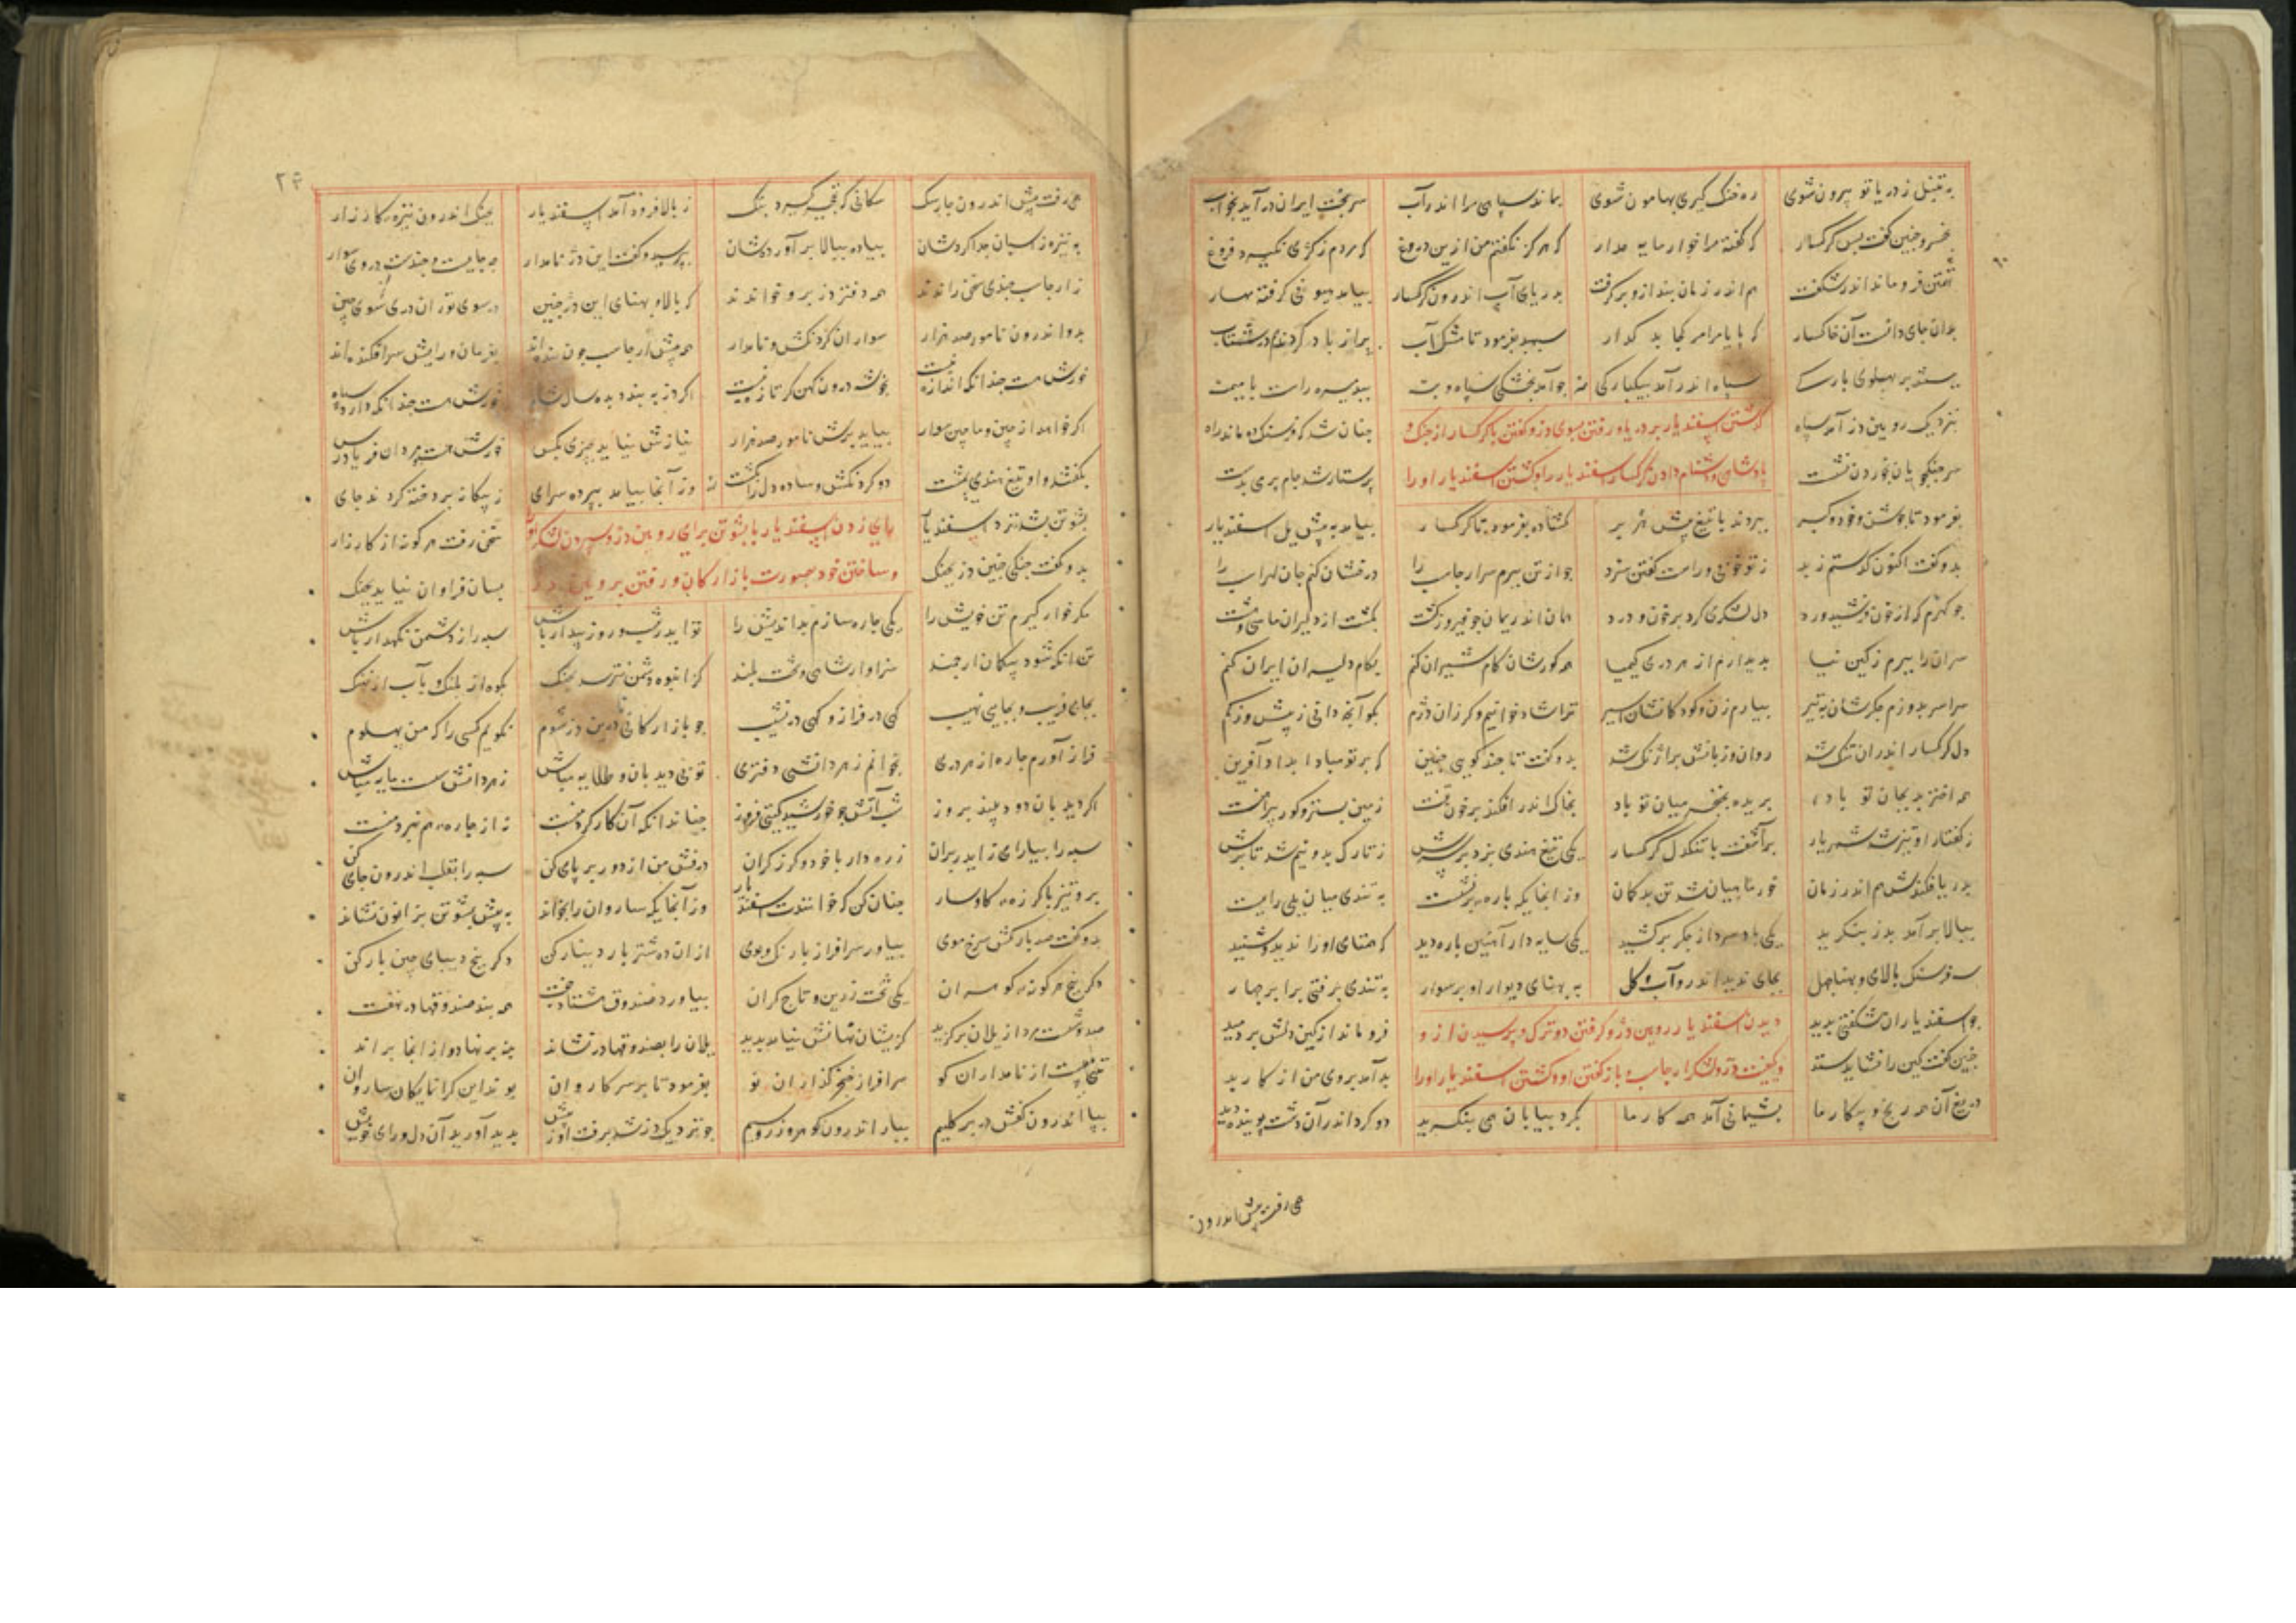 به تنبل ز دریا تو بیرون شوی ره خنک گیری بهامون شوی بماند سپاهی مرا اندر آب سر بخت ایران در آید بخواب
بخسرو چنین گفت پس گرگسار که گفته مرا خوار مایه مدار که هرگز نگفتم من از بن دروغ که مردم ز کژی نگیرد فروغ
تهمتن فرو ماند اندر شگفت هم اندر زمان بند ازو برگرفت بدریای آب اندرون گرگسار بیامد هیونی گرفته مهار
بدان جای دانست آن خاکسار که پایا مر او را کجا بد گدار سپهبد بفرمود تا مشک آب پر از باد کردند هم در شتاب
ببستند بر پهلوی بارگی سپاه اندر آمد بیکبارگی چو آمد بخشکی سپاه و بنه ببد میسره راست با میمنه
بنزدیک رویین دز آمد سپاه چنان شد که فرسنگ ده ماند راه
گذشتن اسفندیار بر دریا و رفتن بسوی دز و گفتن با گرگسار از جنگ و
سر جنگجویان بخوردن نشست پرستار شد جام بر می بدست
پادشاهی و دشنام دادن گرگسار اسفندیار را و کشتن اسفندیار او را
بفرمود تا جوشن و خود و گبر ببردند با تیغ پیش هژبر گشاده بفرمود تا گرگسار بیامد به پیش یل اسفندیار
بدو گفت اکنون گذستم ز بد ز تو خوبی و راست گفتن سزد چو از تن ببرم سر ارجاسب را درفشان کنم جان لهراسب را
چو کهرم که از خون فرشیدورد دل لشکری کرد بر خون و درد همان اندریمان چو فیروز گشت بکشت از دلیران ما سی و هشت
سران را ببرم ز کین نیا بدیدارم از هر دری کیمیا همه گورشان کام شیران کنم بکام دلیران ایران کنم
سراسر بدوزم جگرشان به تیر بیارم زن و کودکانشان اسیر ترا شاد خوانیم و گر زان دژم بگو آنچه دانی ز بیش و ز کم
دل گرگسار اندران تنگ شد روان و زبانش بر آژنگ شد بدو گفت تا چند گویی چنین که بر تو مبادا بداد آفرین
همه اختر بد بجان تو باد بریده بخنجر میان تو باد بخاک اندر افکنده بر خون تنت زمین بستر و گور پیراهنت
ز گفتار او تیز شد شهریار برآشفت با تنگدل گرگسار یکی تیغ هندی بزد بر سرش ز تارک بدو نیم شد تا برش
بدریا فکندش هم اندر زمان خور ماهیان شد تن بدگمان وز انجا یکه باره بر نشست به تندی میان یلی را ببست
ببالا برآمد بدز بنگرید یکی باد سرد از جگر برکشید یکی سایه دار آهنین باره دید که همتای او را ندید و شنید
سه فرسنگ بالای و پهنا چهل بجای ندید اندرو آب و گل به پهنای دیوار او بر سوار به تندی برفتی برابر چهار
چو اسفندیار آن شگفتی بدید فرو ماند از کین دلش بر دمید
دیدن اسفندیار رویین دز و گرفتن دو ترک و پرسیدن از و
چنین گفت کین را نشاید ستد بد آمد بروی من از کار بد
کیفیت دز و لشکر ارجاسب و باز گفتن او و کشتن اسفندیار او را
دریغ آن همه رنج و پیکار ما پشیمانی آمد همه کار ما بگرد بیابان همی بنگرید دو کرد اندر آن دشت پوینده دید
همی رفت پیش اندرون
همی رفت پیش اندرون چار سگ سگانی که نخجیر گیرد بتگ ز بالا فرود آمد اسفندیار بچنگ اندرون نیزه کارزار
به نیزه ز اسپان جدا کردشان پیاده ببالا بر آوردشان بپرسید و گفت این دز نامدار چه جایست و چندست در وی سوار
ز ارجاسب چندی سخن راندند همه دفتر دز برو خواندند که بالا و پهنای این دز ببین در سوی توران دری سوی چین
بدو اندرون نامور صد هزار سواران گردنکش و نامدار همه پیش ارجاسب چون بنده اند بفرمان و رایش سر افکنده اند
خورش هست چندانکه اندازه نیست بخوشه درون کهن گر تازه نیست اگر در به بندد بده سال شاه خورش هست چندانکه دارد سپاه
اگر خواهد از چین و ماچین سوار بیاید برش نامور صد هزار نیازش نیاید بچیزی بکس خورش هست و مردان فریادرس
بگفتند و او تیغ هندی بمشت دو گردنکش و ساده دل را بکشت وز آنجا بیامد بپرده سرای ز بیگانه پردخته کردند جای
بشوتن بشد نزد اسفندیار سخن رفت هر گونه از کارزار
رای زدن اسفندیار با بشوتن برای رویین دز و سپردن لشکر
بدو گفت جنگی چنین دز بجنگ بسال فراوان نیاید بچنگ
و ساختن خود بصورت بازارگان و رفتن بر رویین دز
مگر خوار گیرم تن خویش را یکی چاره سازم بداندیش را تو ایدر شب و روز بیدار باش سپه را ز دشمن نگهدار باش
تن آنکه شود بیگمان ارجمند سزاوار شاهی و تخت بلند کز انبوه دشمن نترسد بجنگ بکوه از پلنگ و بآب از نهنگ
بجای فریب و بجایی نهیب گهی در فراز و گهی در نشیب چو بازارگانی درین دز شوم نگویم کسی را که من پهلوم
فراز آورم چاره از هر دری بخوانم ز هر دانشی دفتری تو بی دیدبان و طلایه مباش ز هر دانشی سست مایه مباش
اگر دیدبان دود بیند بروز شب آتش چو خورشید گیتی فروز چنان دانکه آن کار کرد منست نه از چاره هم نبرد منست
سپه را بیارای ز ایدر بران زره دار با خود و گرز گران درفش من از دور بر پای کن سپه را بقلب اندرون جای کن
برو تیز با گرزه گاوسار چنان کن که خوانندت اسفندیار وز آنجا یکه ساروان را بخواند به پیش بشوتن بزانو نشاند
بدو گفت صد بارکش سرخ موی بیاور سرافراز با رنگ و بوی از ان ده شتر بار دینار کن دگر پنج دیبای چین بار کن
دگر پنج هر گونه گوهران یکی تخت زرین و تاج گران بیاورد صندوق هشتاد جفت همه بند صندوقها در نهفت
صد و شست مرد از یلان برگزید کزیشان نهانش نیامد پدید یلان را بصندوقها در نشاند بنه بر نهاد و از انجا براند
تنی بیست از نامداران گو سرافراز خنجر گذاران نو بفرمود تا بر سر کاروان بوند این گرانمایگان ساروان
بپا اندرون کفش و در بر گلیم ببار اندرون گوهر و زر و سیم چو نزدیک دز شد برفت او ز پیش بدید آورید آن دل و رای خویش